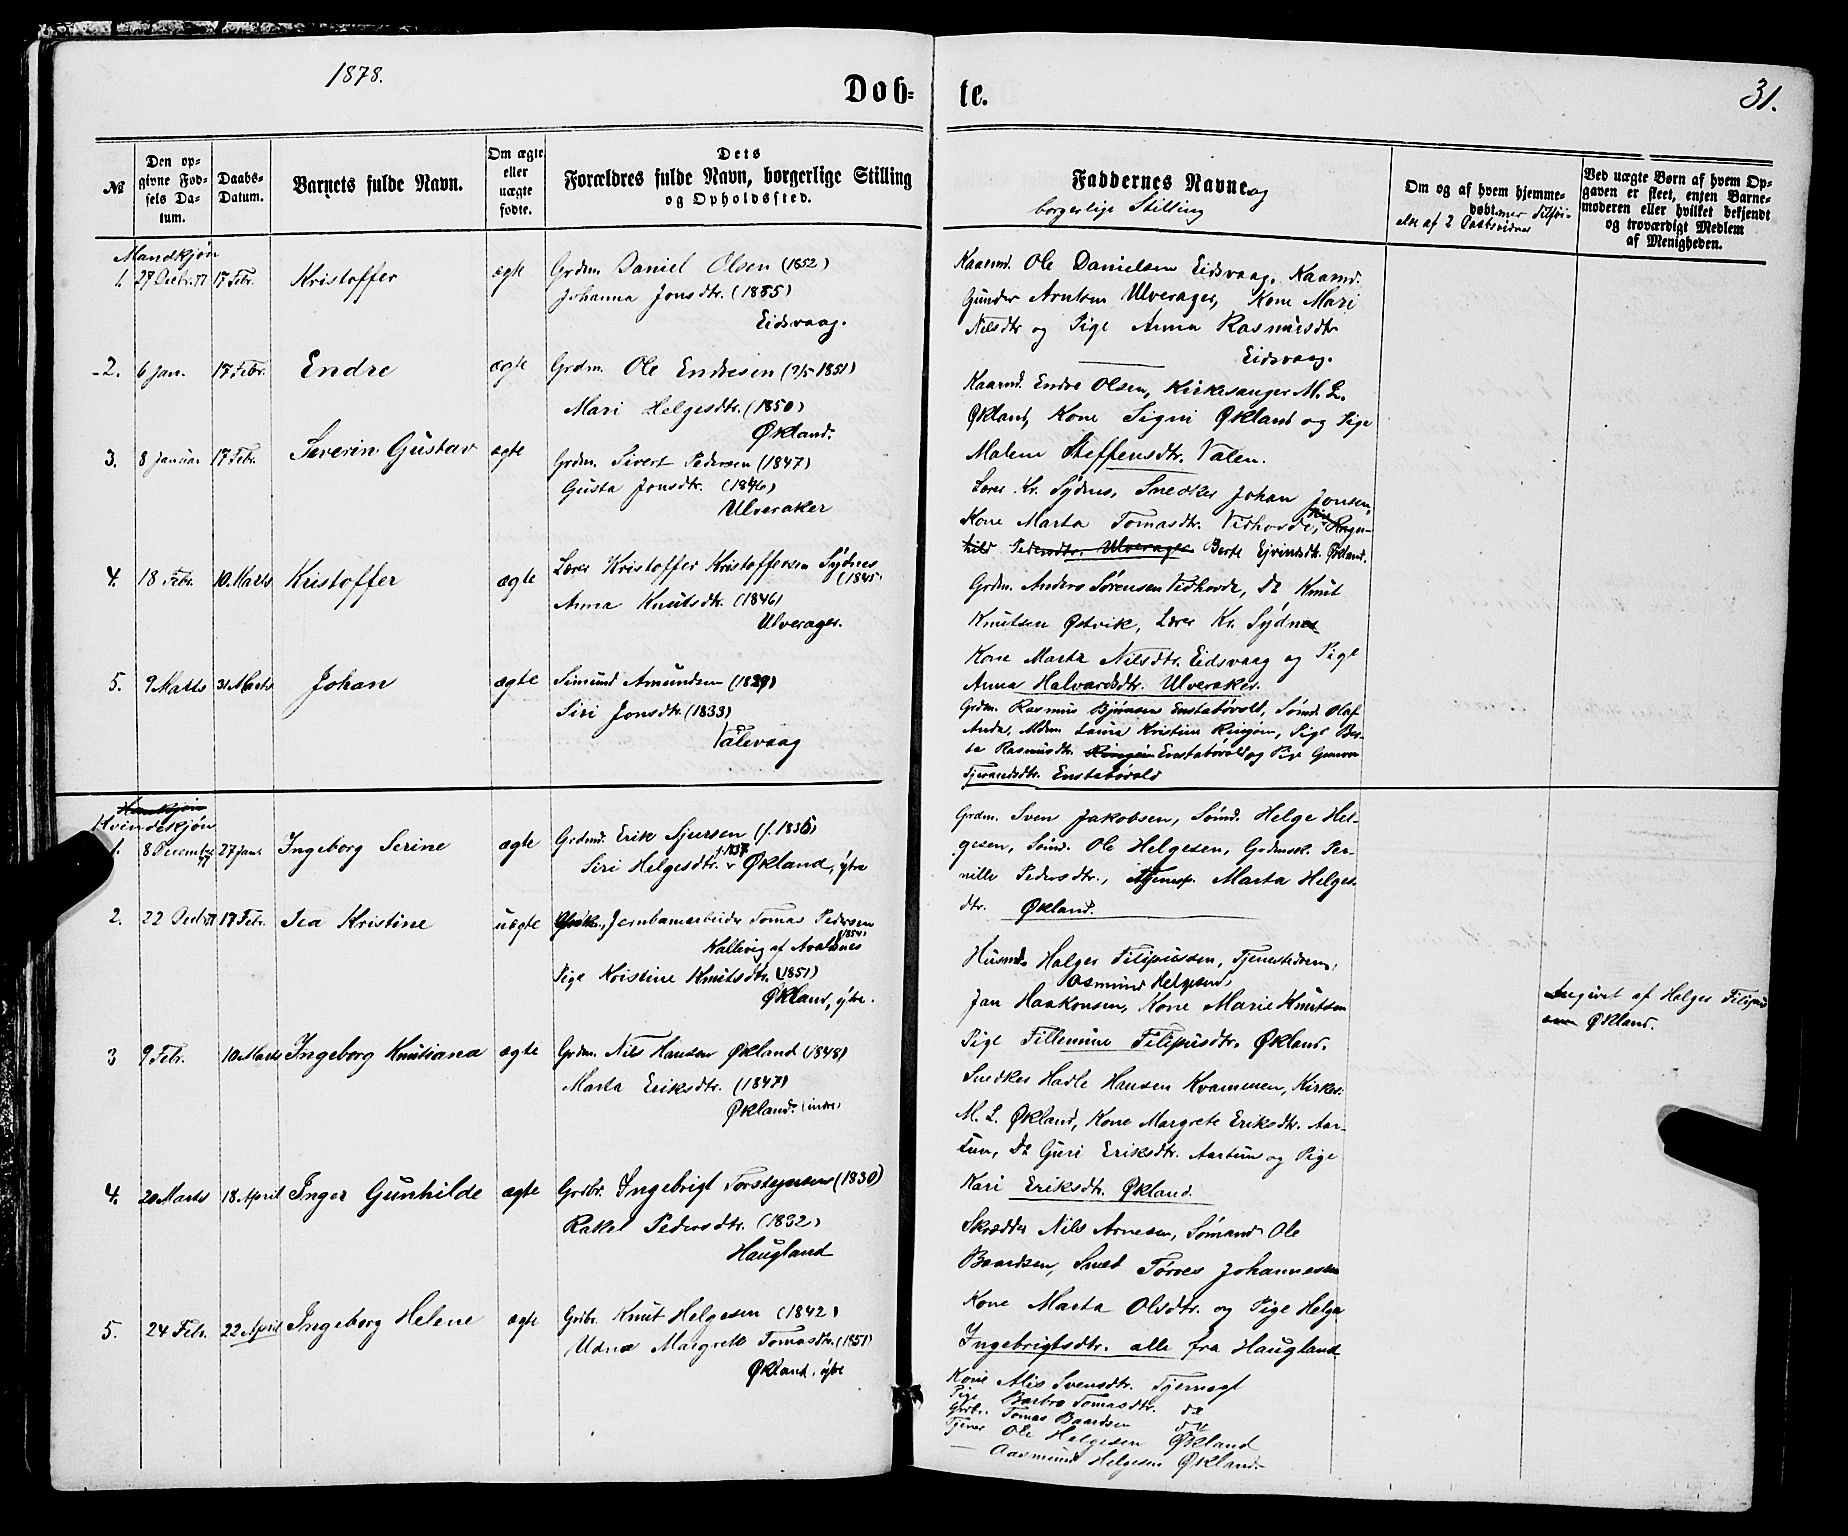 1878.
Døb-
№
Den op-
givne Fød-
sels Da-
tum.
Daabs-
Datum.
Barnets fulde Navn.
Om ægte
eller
uægte
fødte.
Dets
Forældres fulde Navn, borgerlige Stilling
og Opholdssted.
Mandkjøn
1. 27 Decbr. 77 17 Febr. Kristoffer ægte Grdm. Daniel Olsen (1852)
Johanna Jonsdtr. (1855)
Eidsvaag.
2. 6 Jan. 17 Febr. Endre ægte Grdm. Ole Endresen (1851)
Mari Helgesdtr. (1850)
Økland.
3. 8 Januar 17 Febr. Severin Gustav ægte Grdm. Sivert Pedersen (1847)
Gusta Jonsdtr. (1846)
Ulveraker
4. 18 Febr. 10 Marts Kristoffer ægte Lærer Kristoffer Kristoffersen Sydnes
(1845)
Anna Knutsdtr. (1846)
Ulverager.
5. 9 Marts 31 Marts Johan ægte Simund Amundsen (1829)
Siri Jonsdtr. (1833)
Valevaag
Hvindekjøn
1. 8 December 77 27 Jan. Ingeborg Serine ægte Grdmd. Erik Sjursen (f. 1836)
Siri Helgesdtr. f. 1837 Økland, ytre
2. 22 Decbr 77 17 Febr. Tea Kristine uægte Jernbanearbeider Tomas Pedersen
Kallevig af Avalsnes
(1854)
Pige Kristine Knutsdtr. (1851)
Økland, ytre.
3 9 Febr. 10 Marts Ingeborg Knutiana ægte Grdm. Nils Hansen Økland (1848)
Marta Eriksdtr. (1847)
Økland. (indre)
4. 20 Marts 18 April Inger Gunhilde ægte Grdbr. Ingebrigt Torsteinsen (1830)
Rakel Pedersdtr. (1832)
Haugland
5. 24 Febr. 22 April Ingeborg Helene ægte Grdbr. Knut Helgesen (1842)
Udna Margrete Tomasdtr. (1851)
Økland, ytre
te.
31.
Faddernes Navne og
borgerlige Stilling
Om og af hvem hjemme-
døbt, mer Tilføi-
else af 2 Daabsvidner
Ved uægte Børn af hvem Op-
gaven er skeet, enten Barne-
moderen eller hvilket bekjendt
og troværdigt Medlem
af Menigheden.
Kaarmd. Ole Danielsen Eidsvaag, Kaarmd.
Gunder Arntsen Ulverager, Kone Mari
Nilsdtr og Pige Anna Rasmusdtr
Eidsvaag.
Kaarmd. Endre Olsen, Kirkesanger M. L.
Økland, Kone Signi Økland og Pige
Malene Steffensdtr. Valen.
Lærer Kr. Sydnes, Snedker Johan Jonsen,
Kone Marta Tomasdtr. Vidhovde, Pige Ragn-
hild Pedersdtr. Ulverager Berte Ejvindsdt. Økland.
Grdm. Anders Sørensen Vidhovde, Do Knut
Knutsen Østvik, Lærer Kr. Sydnes
Kone Marta Nilsdtr. Eidsvaag og Pige
Anna Halvardsdtr. Ulveraker.
Grdm. Rasmus Bjørnsen Enstabøvold, Sømd. Olaf
Anda, Mdm Laura Kristine Ringøen, Pige Ber-
ta Rasmusdtr. Ringøen Enstabøvold og Pige
Enstabøvold
Grdm. Sven Jakobsen, Sømd. Helge Hel-
gesen, Sømd. Ole Helgesen, Grdmsk. Per-
nille Pedersdtr., Tjenesp. Marta Helges-
dtr. Økland.
Husmd. Holger Filipussen, Tjenestedreng
Osmund Helgesen,
Jan Haakonsen, Kone Marie Knutsen
Pige Fillemine Filipusdtr. Økland.
Angivet af Holger Filipus
sen Økland.
Snedker Hadle Hansen Kvammen, Kirkes.
M. L. Økland, Kone Margrete Eriksdtr. Aar-
tun, Do Guri Eriksdtr. Aartun og Pige
Kari Eriksdtr. Økland.
Skrædder Nils Arnesen, Sømand Ole
Baardsen, Smed Tørres Johannesen
Kone Marta Olsdtr. og Pige Helga
Ingebrigtsdtr. alle fra Haugland
Kone Alis Svensdtr. Tjernagl
Pige Barbro Tomasdtr. do
Grdbr. Tomas Baardsen do
Tjener Ole Helgesen Økland
— Aasmund Helgesen Økland.